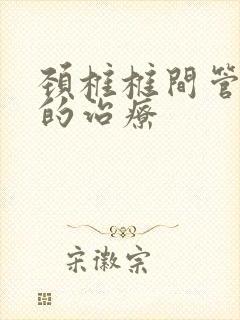 頚椎椎間管
的治療
宋徽宗